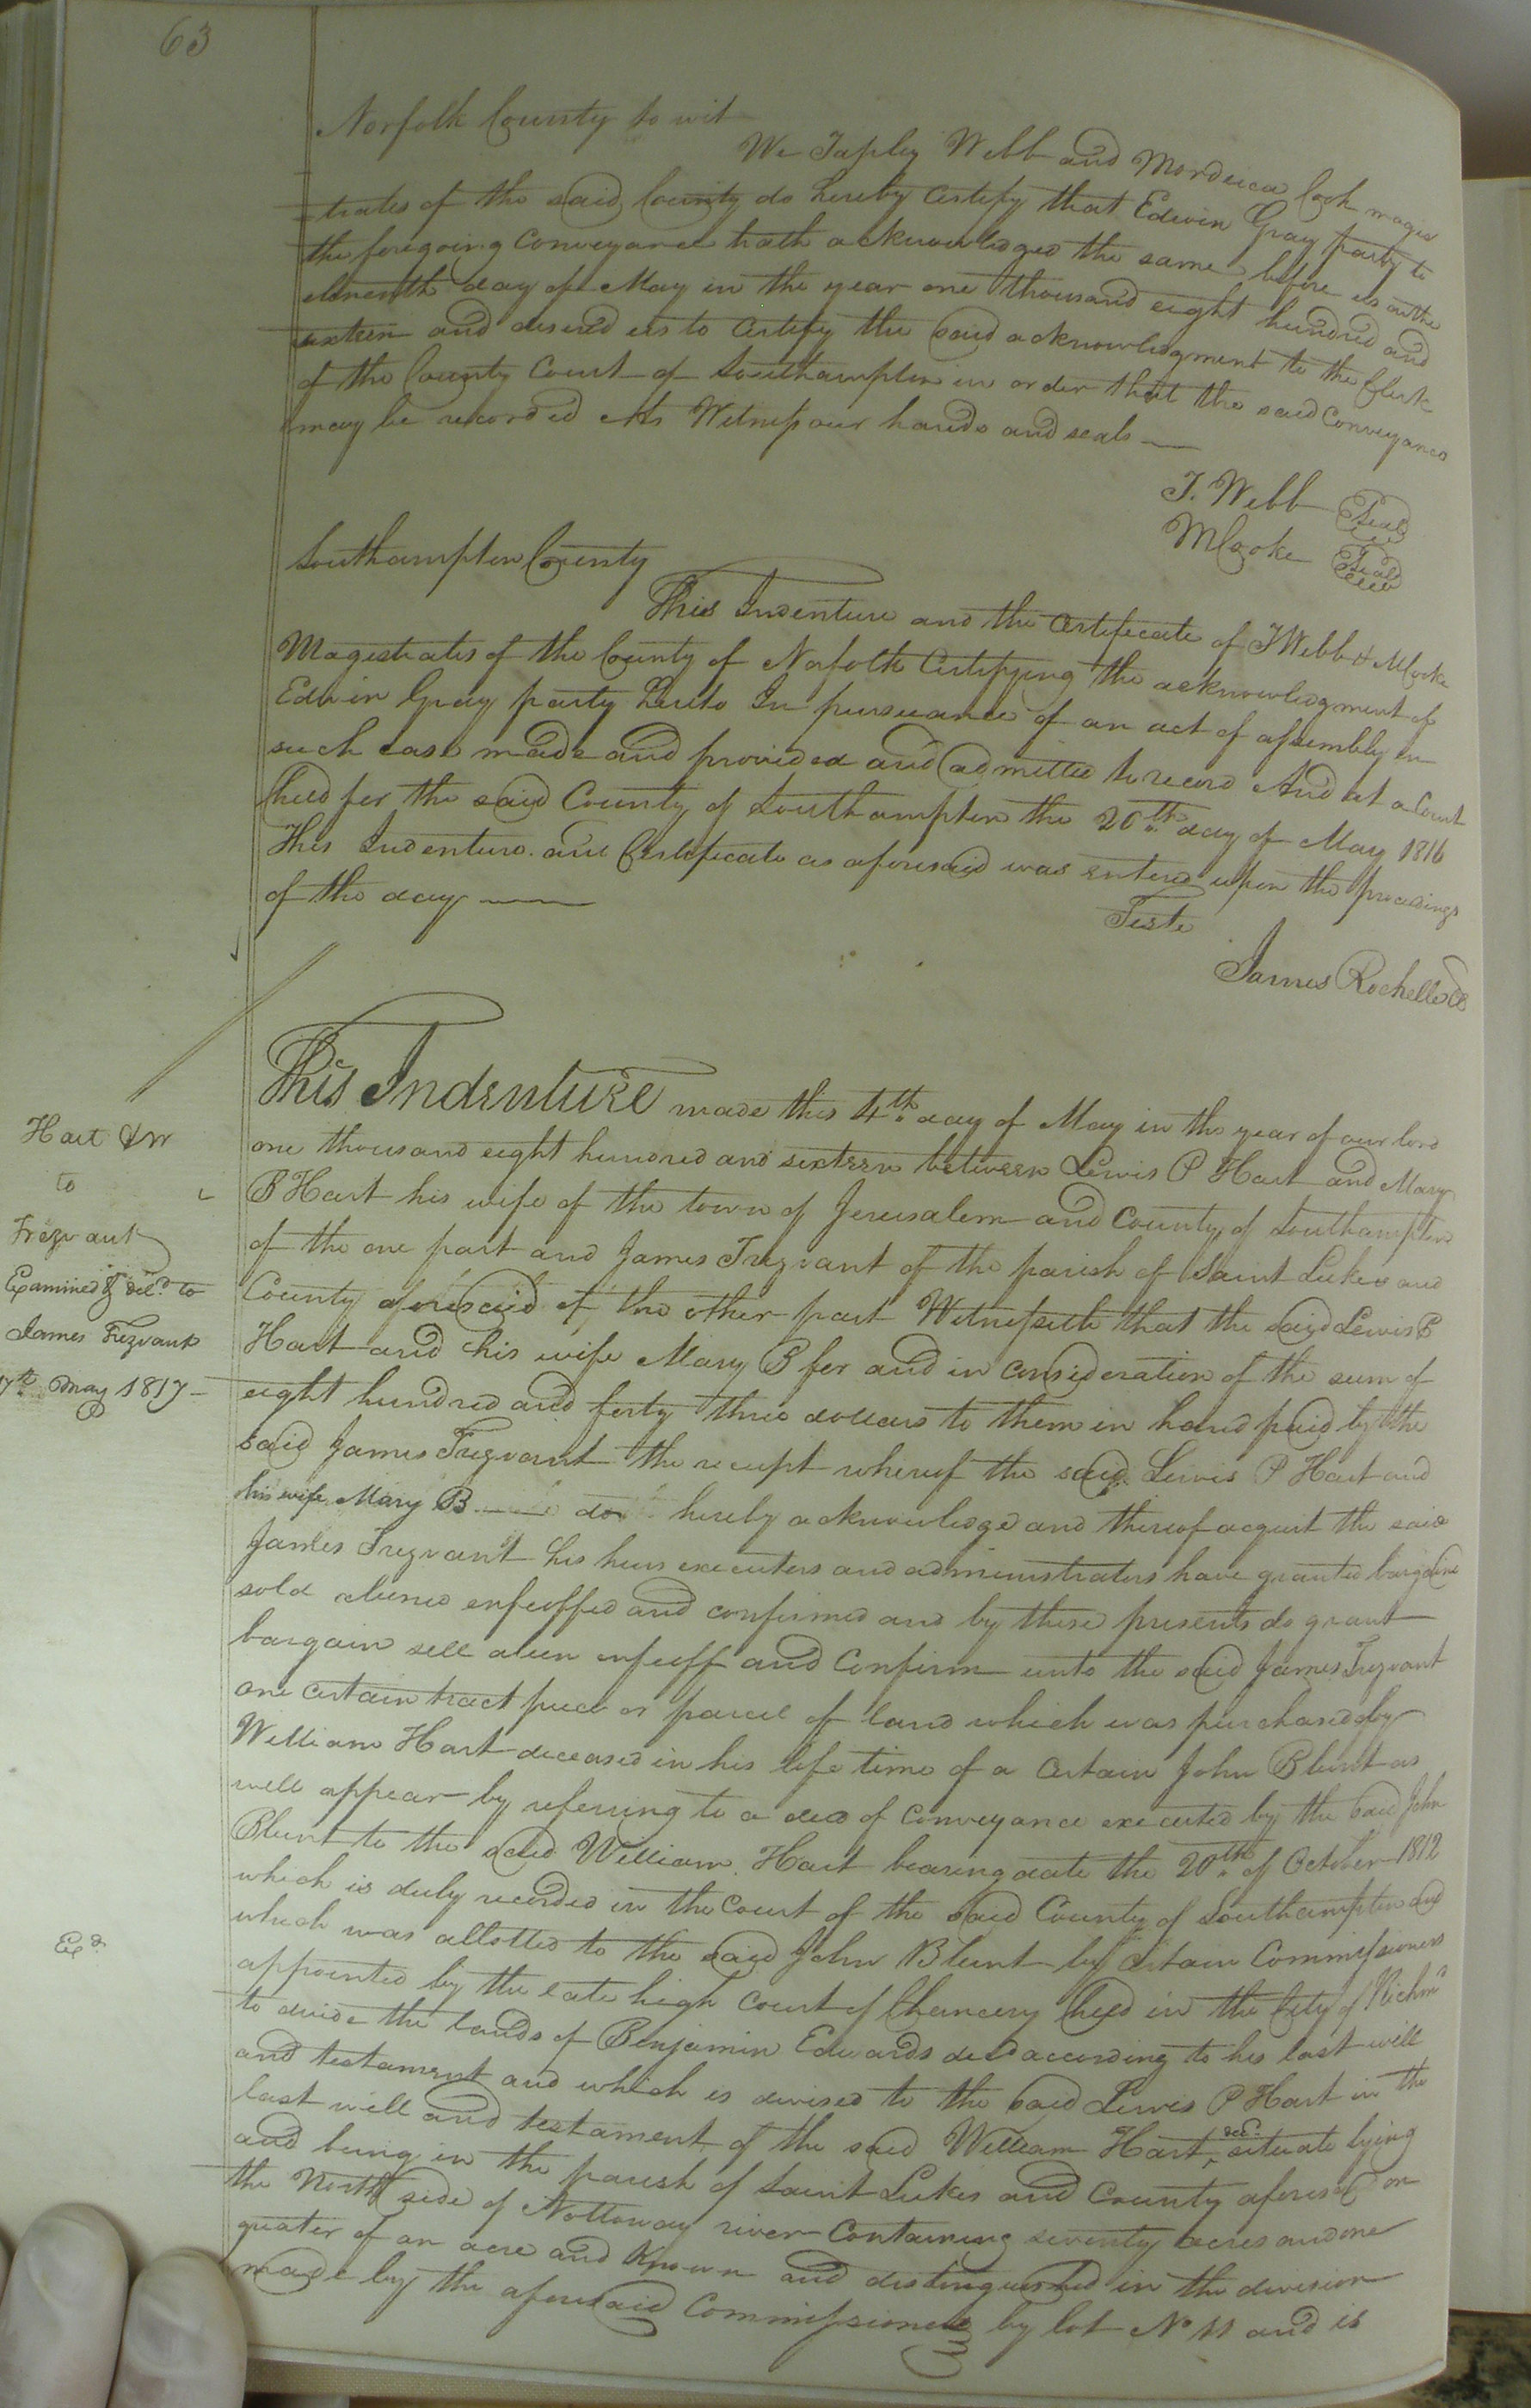 63
Norfolk County to wit
We Tapley Webb and Mordecai Cook magis
trates of the said County do hereby Certify that Edwin Gray party to
the foregoing Conveyance hath acknowledged the same before us on the
eleventh day of May in the year one thousand eight hundred and
sixteen and desired us to Certify the said acknowledgment to the Clerk
of the County Court of Southampton in order that the said Conveyance
may be recorded As Witness our hands and seals
T. Webb Seal
M Cooke Seal
Southampton County
This Indenture and the Certificate of T Webb & M Cooke
Magistrates of the County of Norfolk Certifying the acknowledgment of
Edwin Gray party hereto In pursuance of an act of assembly in
such case made and provided and admitted to record And at a Court
held for the said County of Southampton the 20th day of May 1816
This Indenture and Certificate as aforesaid was entered upon the proceedings
of the day
Teste
James Rochelle
Hart & W
to
Trezvant
Examined & del.d to
James Trezvant
7th May 1817
This Indenture made this 4th day of May in the year of our lord
one thousand eight hundred and sixteen between Lewis P Hart and Mary
B Hart his wife of the town of Jerusalem and County of Southampton
of the one part and James Trezvant of the parish of Saint Lukes and
County aforesaid of the other part Witnesseth that the said Lewis P
Hart and his wife Mary B for and in consideration of the sum of
eight hundred and forty three dollars to them in hand paid by the
said James Trezvant the receipt whereof the said Lewis P Hart and
his wife Mary B do hereby acknowledge and thereof acquit the said
James Trezvant his heirs executors and administrators have granted bargained
sold aliened enfeoffed and confirmed and by these presents do grant
bargain sell alien enfeoff and Confirm unto the said James Trezvant
one certain tract piece or parcel of land which was purchased by
William Hart deceased in his life time of a Certain John Blunt as
will appear by referring to a deed of Conveyance executed by the said John
Blunt to the said William Hart bearing date the 20th of October 1812
which is duly recorded in the Court of the said County of Southampton and
which was allotted to the said John Blunt by Certain Commissioners
Ex.d
appointed by the late high Court of Chancery held in the City of Richmd
to divide the lands of Benjamin Edwards decd according to his last will
and testament and which is devised to the said Lewis P Hart in the
last will and testament of the said William Hart decd situate lying
and being in the parish of Saint Lukes and County aforesaid on
the North side of Nottoway river Containing seventy acres and one
quater of an acre and Known and distinguished in the division
made by the aforesaid Commissioners by lot No 11 and is